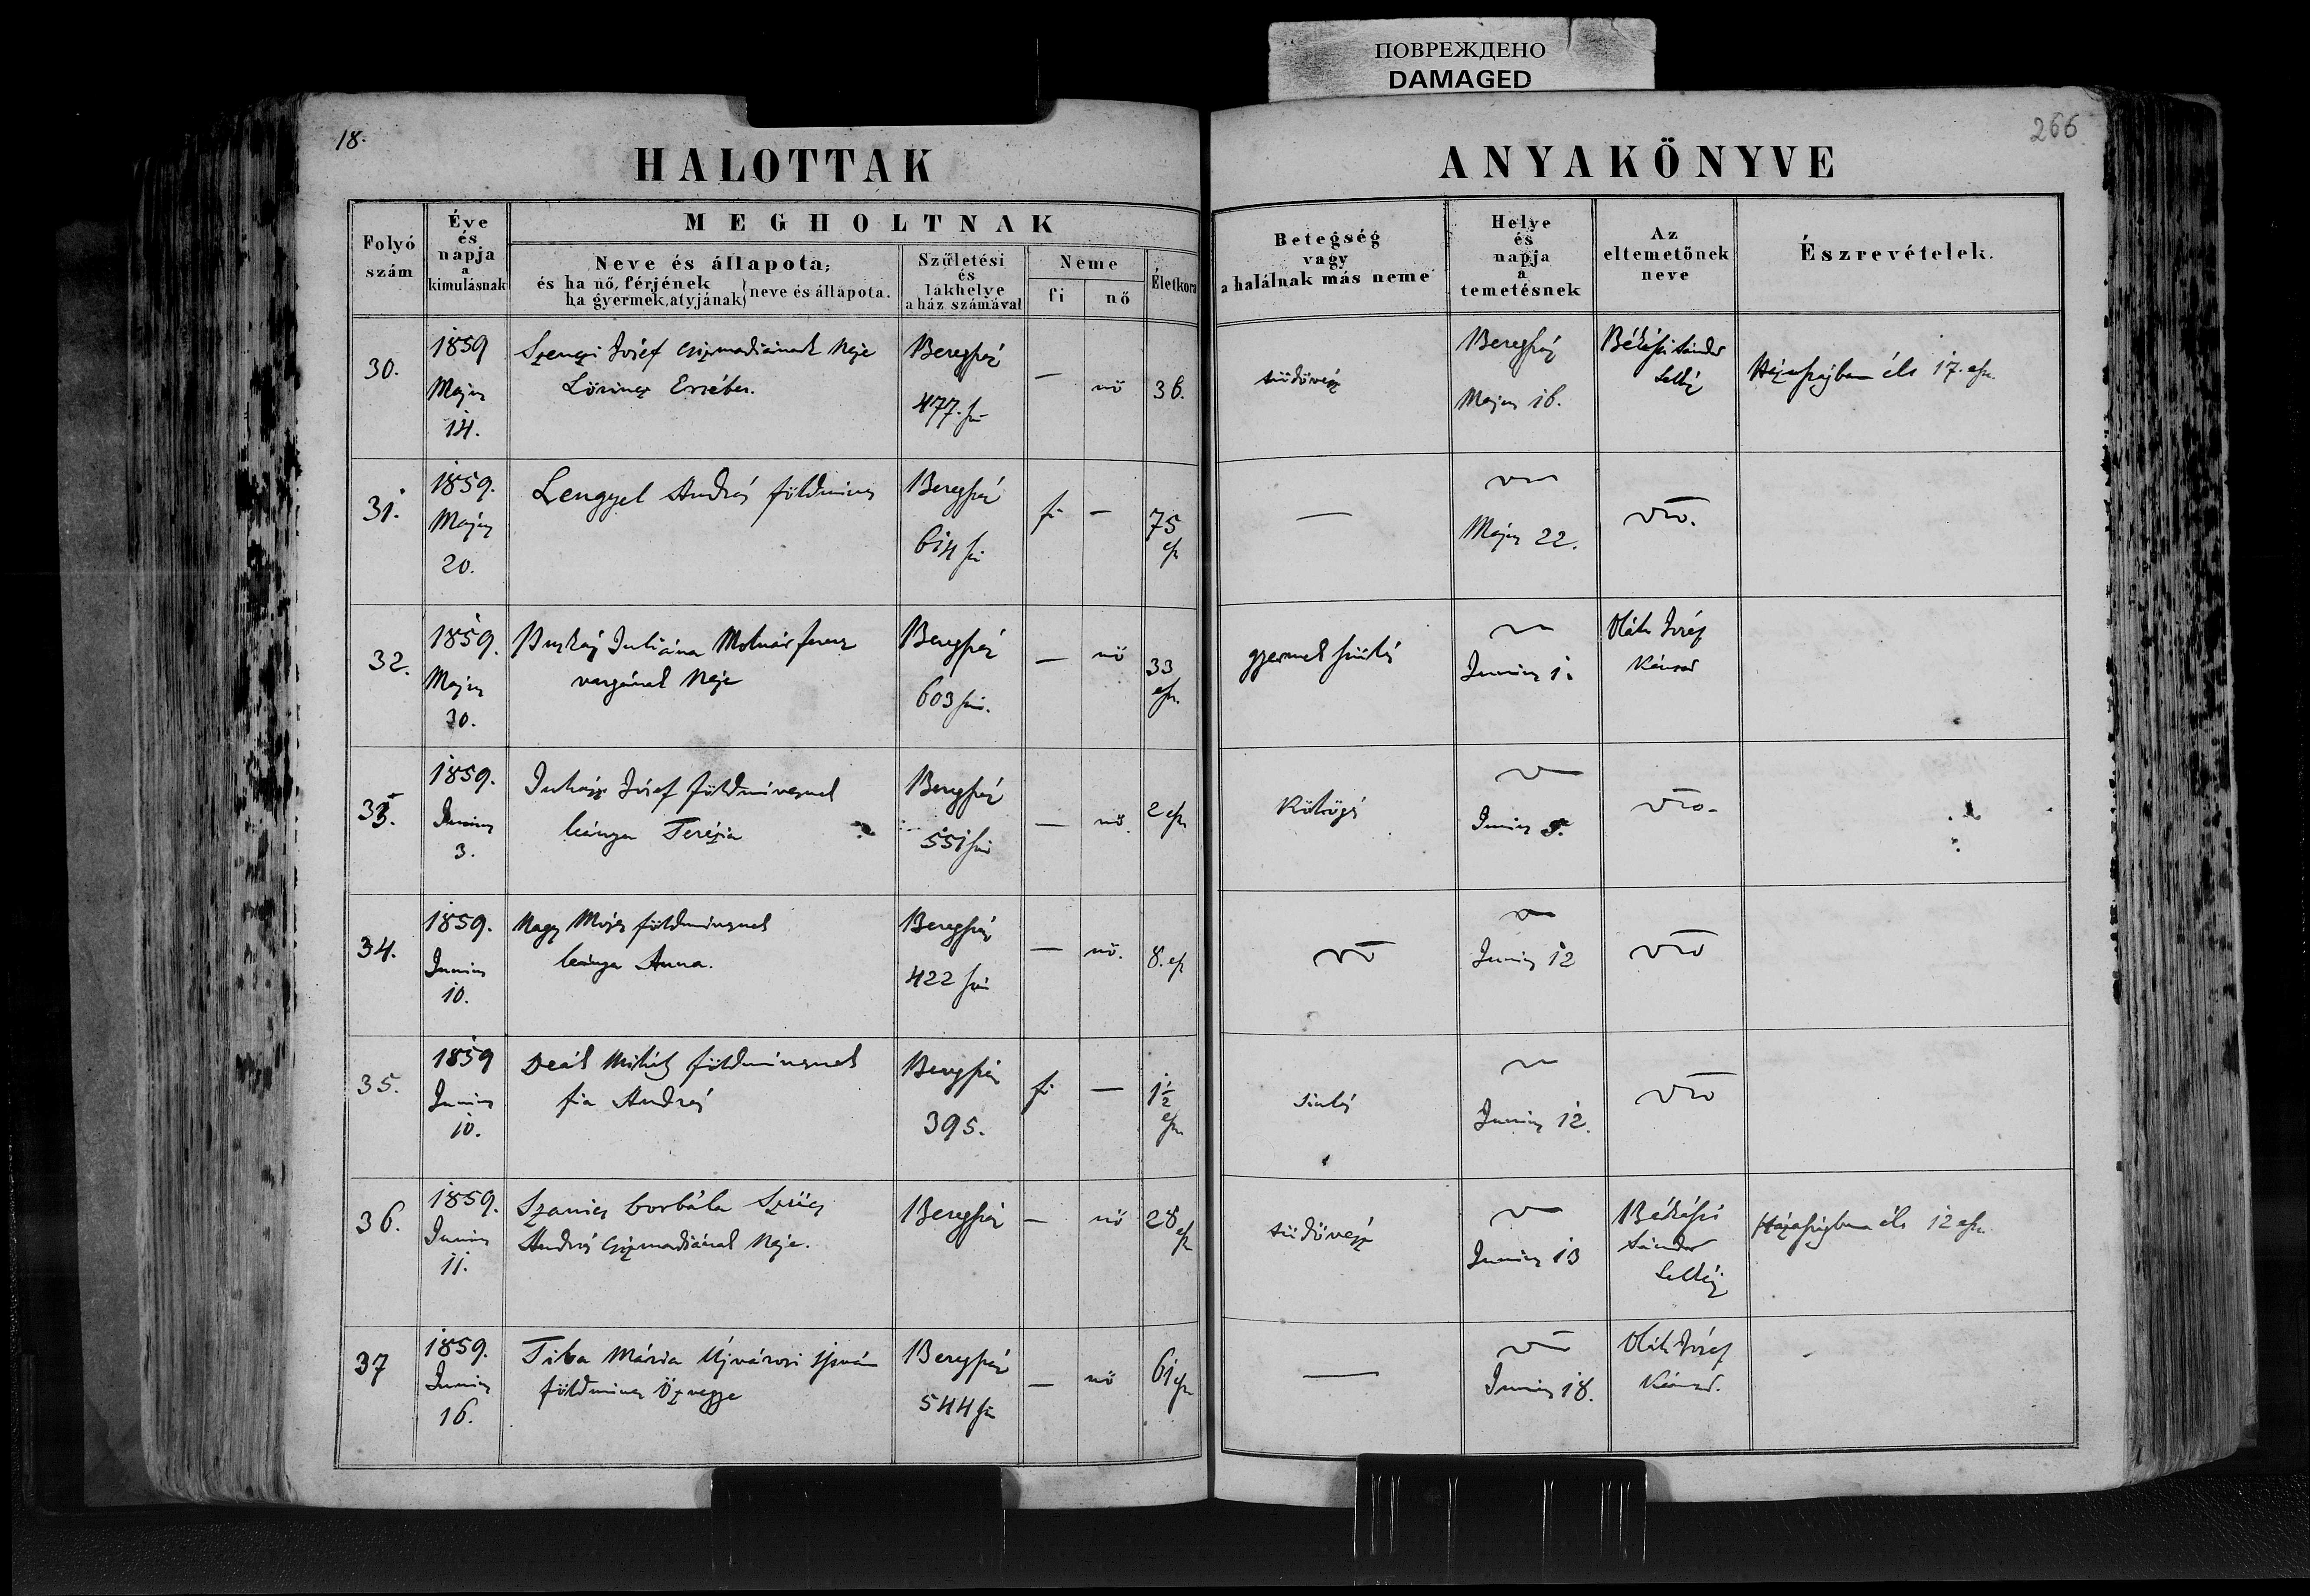 ПОВРЕЖДЕНО
DAMAGED
18.
266
HALOTTAK
ANYAKÖNYVE
Folyó
szám
Éve
és
napja
a
kimulásnak
MEGHOLTNAK
Neve és állapota;
és ha nő, férjének
ha gyermek, atyjának} neve és állapota.
Születési
és
lakhelye
a ház számával
Neme
fi
nő
Életkora
Betegség
vagy
a halálnak más neme
Helye
és
napja
a
temetésnek
Az
eltemetőnek
neve
Észrevételek.
30.
1859
Május
14.
József csizmadiának Neje
Lőrincz Erzsébet.
Beregszáz
477. szá
—
nő
36.
tüdővész
Beregszáz
Május 16.
Békássi Sándor
Házasságban élt 17. esz.
31.
1859.
Május
20.
Lengyel András földmives
Beregszáz
614 szá
fi
—
75
esz
—
Május 22.
32.
1859.
Május
30.
Juliána Molnár ferencz
vargának Neje
Beregszáz
603 szá.
—
nő
33
esz.
gyermek szülés
Junius 1.
Oláh József
33.
1859.
Junius
3.
Juhász József földmívesnek
leánya Terézia
Beregszáz
551 szá
—
nő.
2 esz
Köhögés
Junius 5.
34.
1859.
Junius
10.
Nagy Mózes földmívesnek
leánya Anna.
Beregszáz
422 szá
—
nő.
8. esz
Junius 12
35.
1859
Junius
10.
Deák Mihály földmívesnek
fia András
Beregszáz
395.
fi
—
1½
esz.
Junius 12.
36.
1859.
Junius
11.
borbála Szűcs
András csizmadiának Neje.
Beregszáz
—
nő
28 esz
tüdővész
Junius 13
Békássi
Sándor
Házasságban élt 12 esz.
37
1859.
Junius
16.
Tiba Mária Újvárosi István
földmives Özvegye
Beregszáz
544 szá
—
nő
61 esz
—
Junius 18.
Oláh József